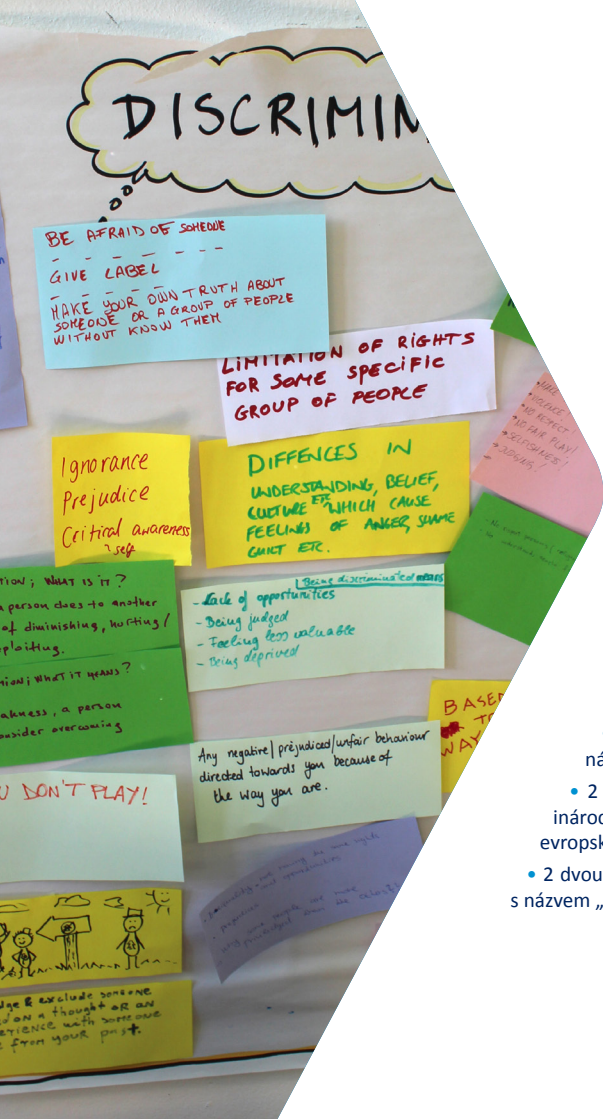 DISCRIMIN
BE AFRAID OF SOMEONE
GIVE LABEL
MAKE YOUR OWN TRUTH ABOUT
SOMEONE OR A GROUP OF PEOPLE
WITHOUT KNOW THEM
LIMITATION OF RIGHTS
FOR SOME SPECIFIC
GROUP OF PEOPLE
Ignorance
Prejudice
Critical awareness
self
DIFFENCES IN
UNDERSTANDING, BELIEF,
CULTURE ETC WHICH CAUSE
FEELINGS OF ANGER, SHAME
GUILT ETC.
NO RESPECT
NO FAIR PLAY!
SELFISHNESS!
TION; WHAT IS IT?
person does to another
of diminishing, hurting/
ploiting.
Being discriminated means
- Lack of opportunities
- Being judged
- Feeling less valuable
- Being deprived
NION; WHAT IT MEANS?
akness, a person
onsider overcoming
BASED
WAY
Any negative/prejudiced/unfair behaviour
directed towards you because of
the way you are.
U DON'T PLAY!
dge & exclude someone
ed on a thought or an
erience with someone
e from your past.
ná
• 2
inárod
evropsk
• 2 dvou
s názvem „